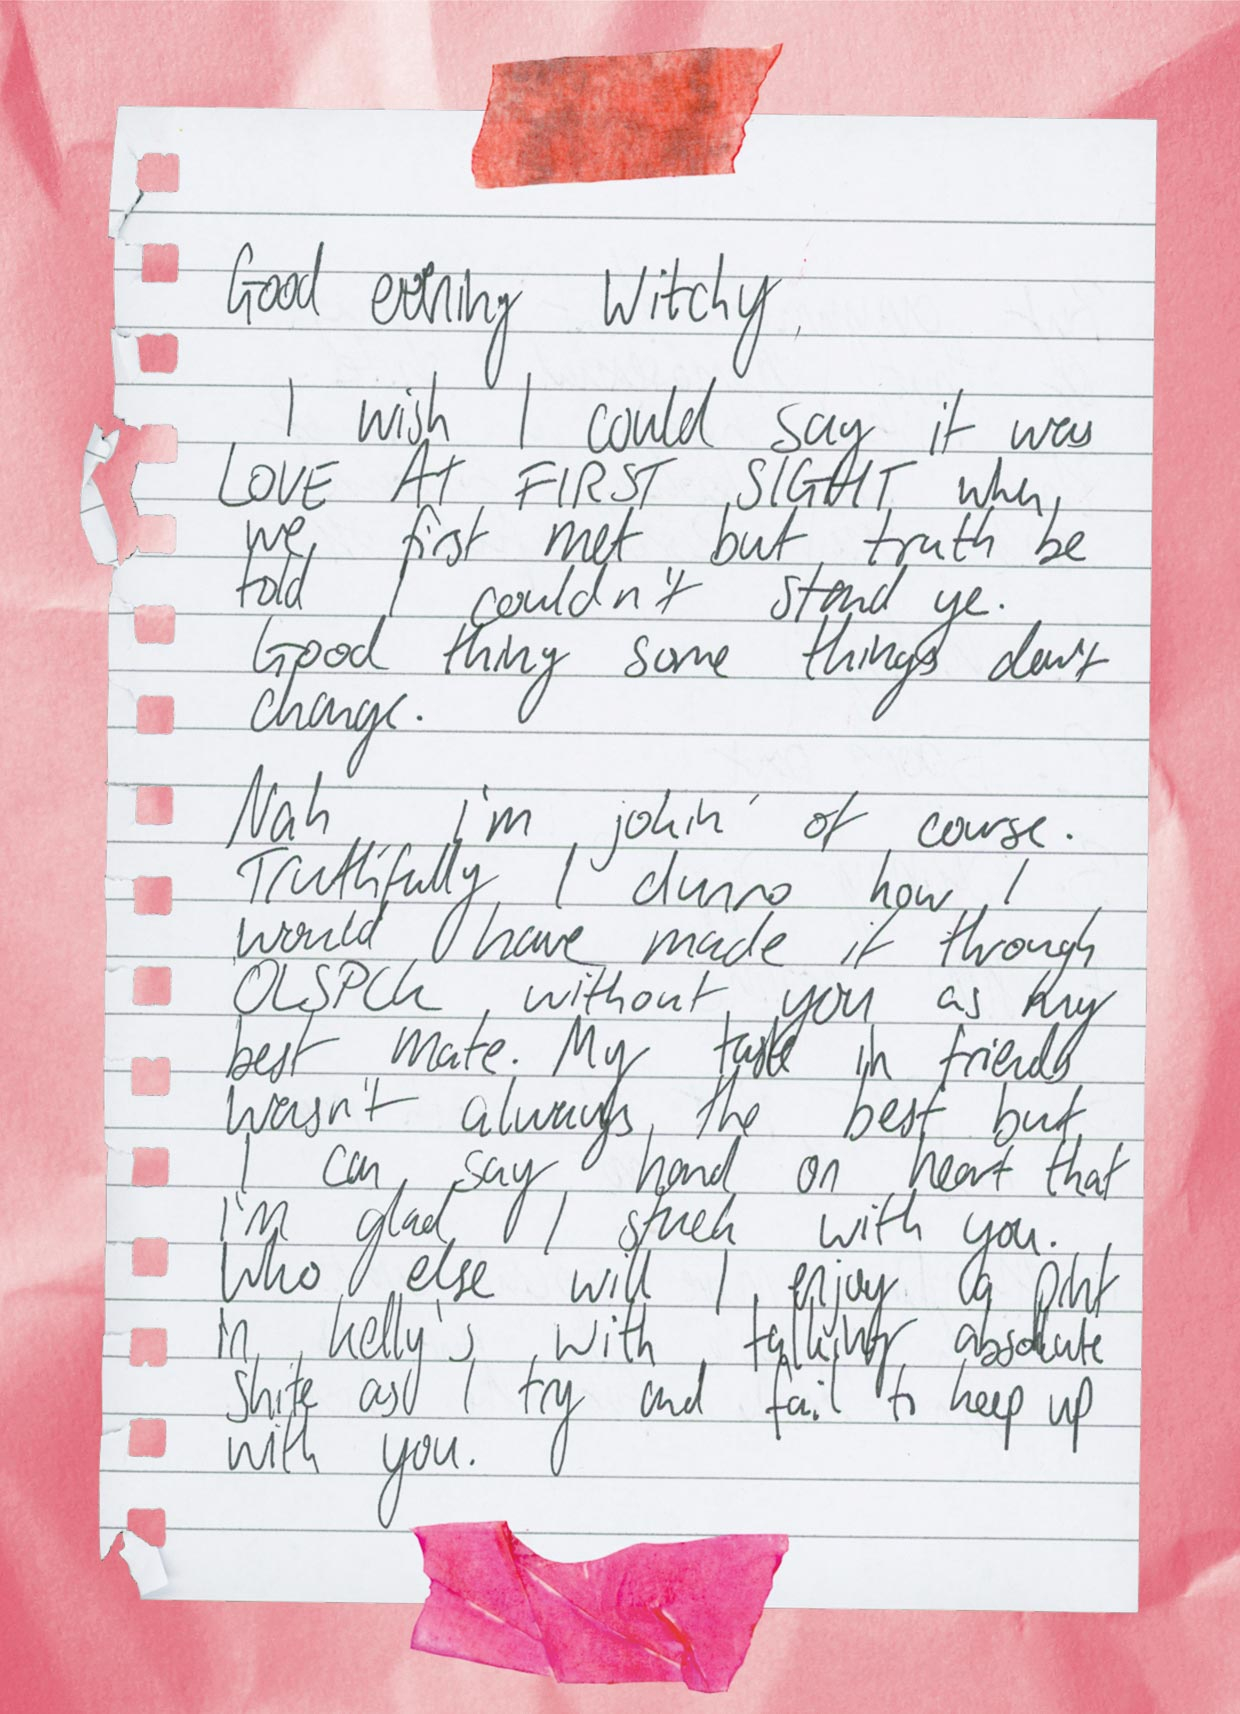 Good evening Witchy,
I wish I could say it was
LOVE At FIRST SIGHT when
we first met but truth be
told I couldn't stand ye.
Good thing some things don't
change.
Nah I'm jokin' of course.
Truthfully I dunno how I
would have made it through
OLSPCK without you as my
best mate. My taste in friends
wasn't always the best but
I can say hand on heart that
I'm glad I stuck with you.
Who else will I enjoy a pint
in Kelly's with talking absolute
shite as I try and fail to keep up
with you.